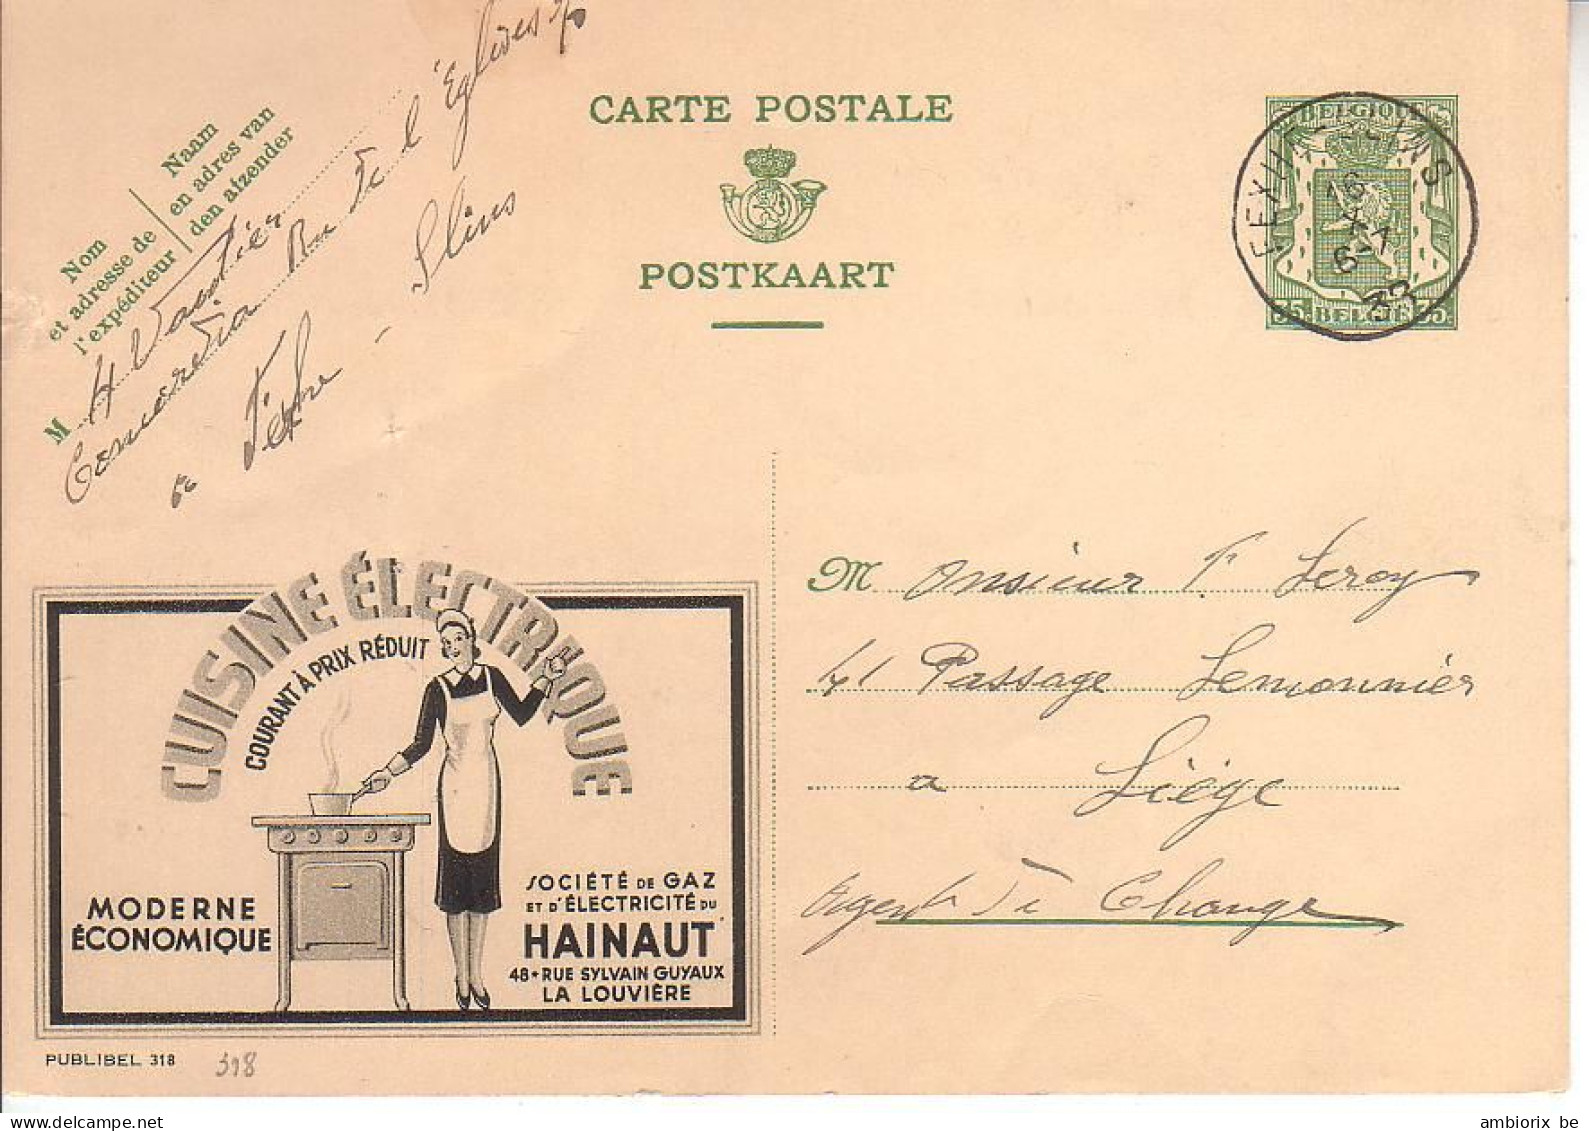 CARTE POSTALE
POSTKAART
Naam
en adres van
den afzender
Nom
et adresse de
l'expéditeur
M H
Rue de l'Eglises 76
à Fexhe - Slins
BELGIQUE
35c BELGIË 35c
FEXHE-SLINS
16
X
6-7
M onsieur F. Leroy
41 Passage Lemonnier
a Liége
Agent de Change
CUISINE ÉLECTRIQUE
COURANT À PRIX RÉDUIT
MODERNE
ÉCONOMIQUE
SOCIÉTÉ DE GAZ
ET D'ÉLECTRICITÉ DU
HAINAUT
48 • RUE SYLVAIN GUYAUX
LA LOUVIÈRE
PUBLIBEL 318
318
ambiorix be